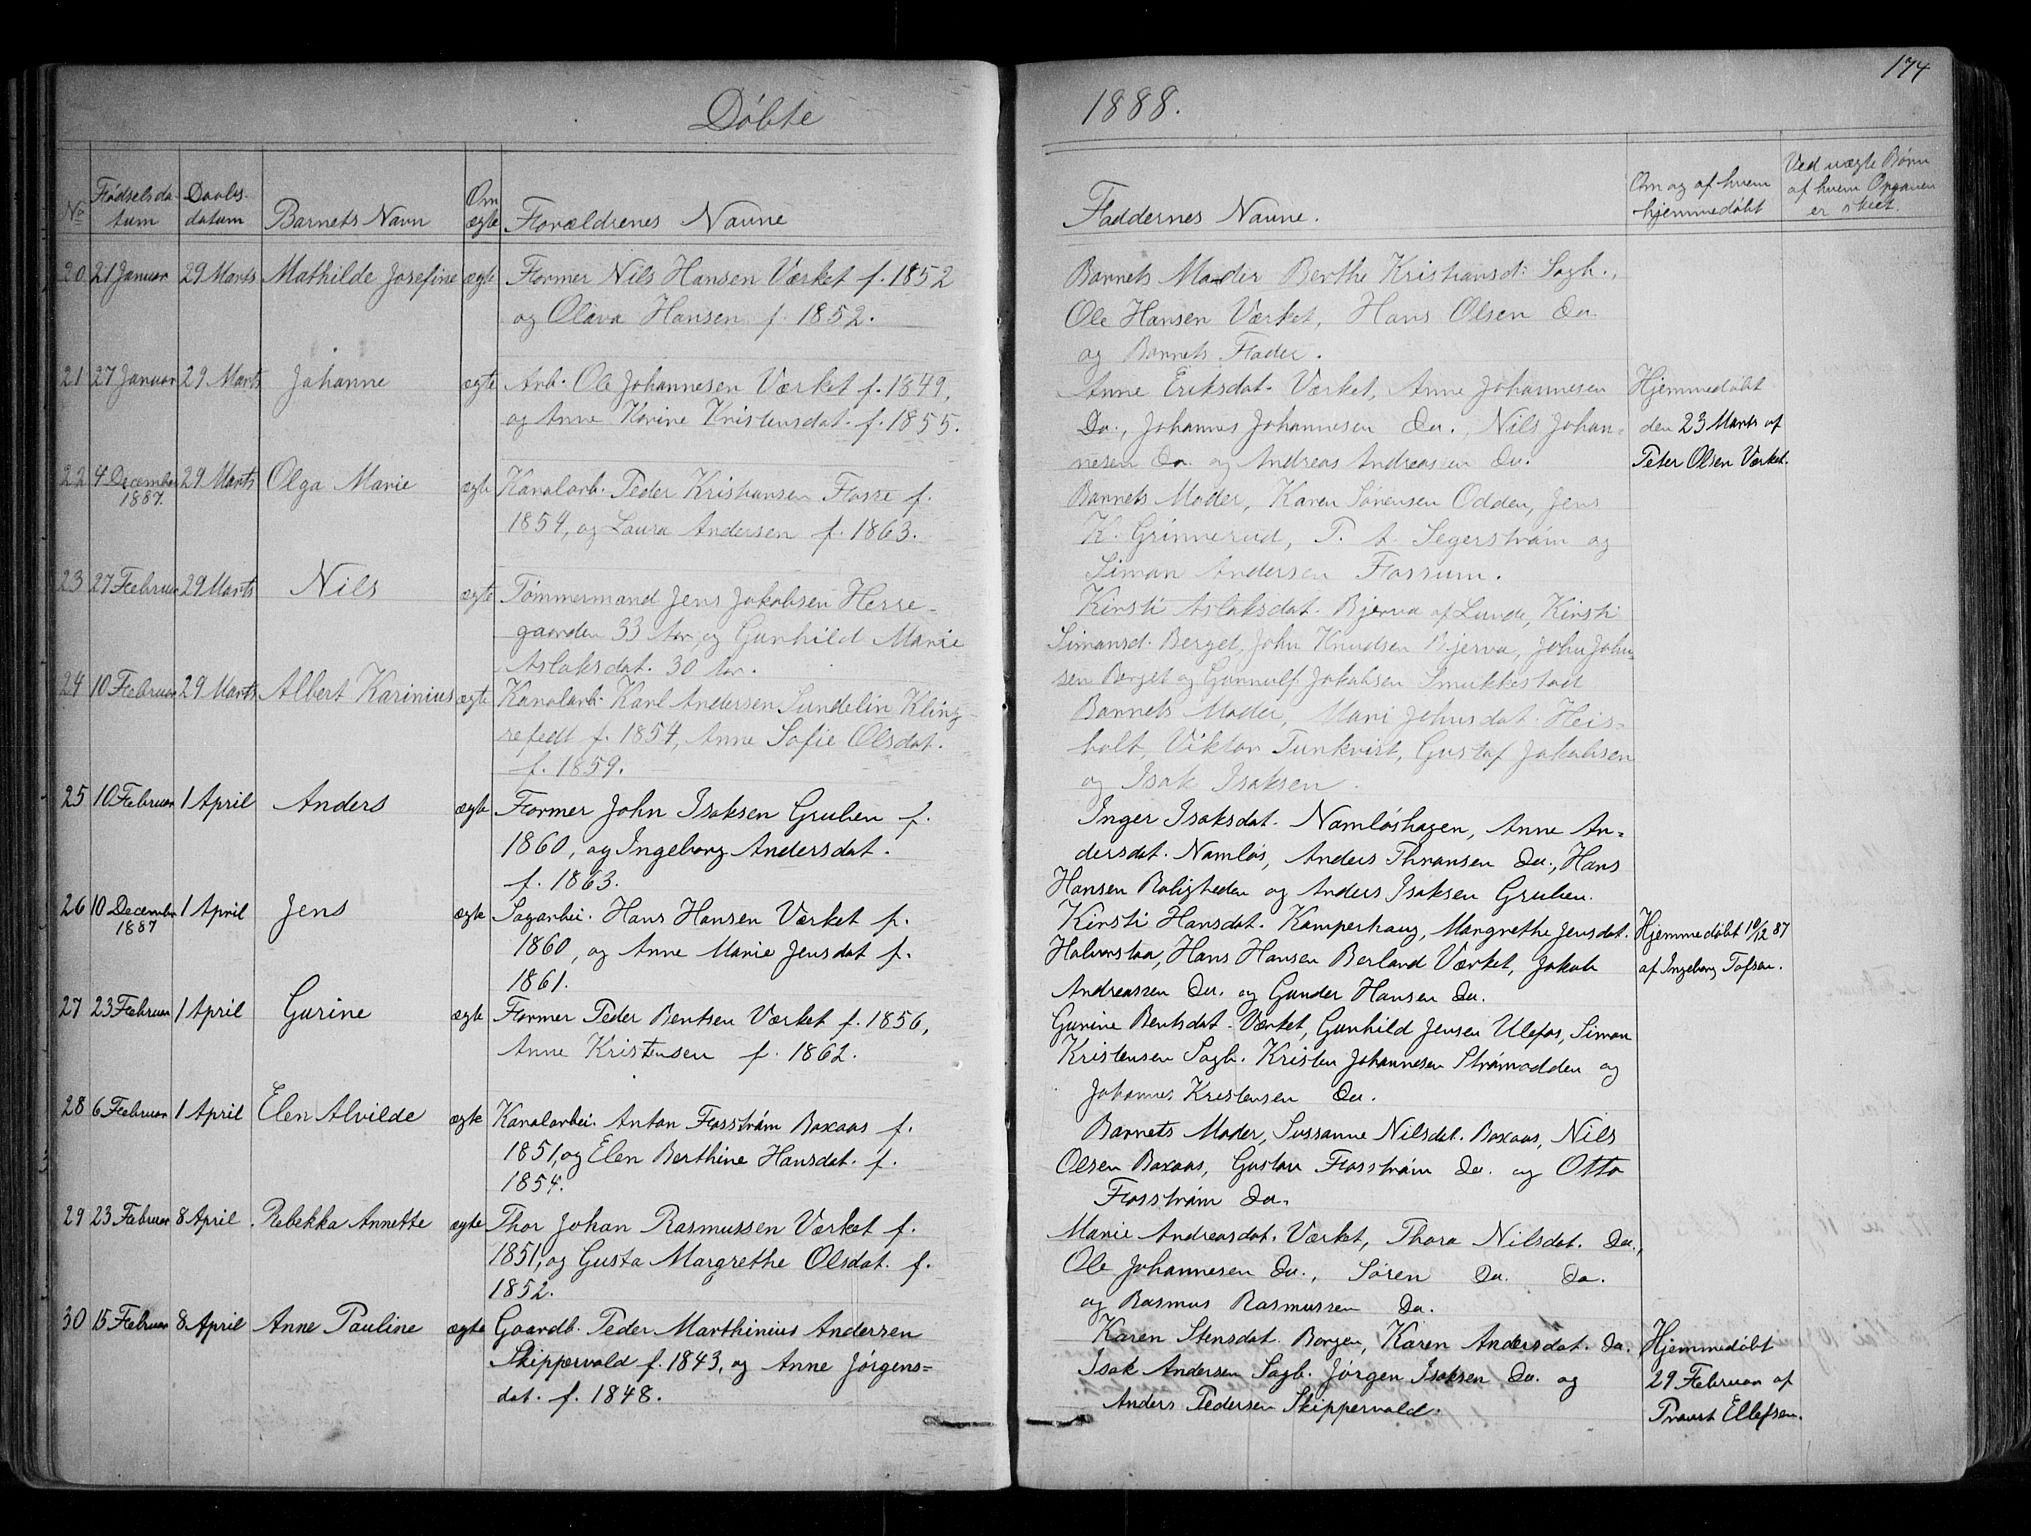 174
Døbte
1888.
No
Fødselsda-
tum
Daabs-
datum
Barnets Navn
Om
ægte
Forældrenes Navne
Faddernes Navne.
Om og af hvem
hjemmedøbt
Ved uægte Børn
af hvem Opgaven
er skeet.
20 21 Januar 29 Marts Mathilde Josefine ægte Former Nils Hansen Værket f. 1852
og Olava Hansen f. 1852.
Barnets Moder Berthe Kristiansd: Sagb.,
Ole Hansen Værket, Hans Olsen Do.
og Barnets Fader.
21 27 Januar 29 Marts Johanne ægte Arb. Ole Johannesen Værket f. 1849,
og Anne Karine Kristensdat. f. 1855.
Anne Eriksdat. Værket, Anne Johannesen
Do., Johannes Johannesen Do., Nils Johan-
nesen Do. og Andreas Andreasen Do.
Hjemmedøbt
den 23 Marts af
Peter Olsen Værket.
22 4 December 29 Marts Olga Marie ægte Kanalarb. Peder Kristiansen Fosse f.
1887.
1854, og Laura Andersen f. 1863.
Barnets Moder, Karen Sørensen Odden, Jens
K. Grinnerud, P. A. Segerstrøm og
Simon Andersen Fossum.
23 27 Februar 29 Marts Nils ægte Tømmermand Jens Jakobsen Herre-
gaarden 33 Aar, og Gunhild Marie
Aslaksdat. 30 Aar.
Kirsti Aslaksdat. Bjerva af Lunde, Kirsti
Simonsd. Berget, John Knudsen Bjerva, John John-
sen Berget og Gunnulf Jakobsen Smukkestad
24 10 Februar 29 Marts Albert Karinius ægte Kanalarb. Karl Andersen Sundelin Kling-
refedt f. 1854, Anne Sofie Olsdat.
f. 1859.
Barnets Moder, Mari Johnsdat. Heis-
holt, Viktor Tunkvist, Gustaf Jakobsen
og Isak Isaksen.
25 10 Februar 1 April Anders ægte Former John Isaksen Gruben f.
1860, og Ingeborg Andersdat.
f. 1863.
Inger Isaksdat. Namløshagen, Anne An-
dersdat. Namløs, Anders Thronsen Do., Hans
Hansen Roligheden og Anders Isaksen Gruben.
26 10 December 1 April Jens ægte Sagarbei. Hans Hansen Værket f.
1887
1860, og Anne Marie Jensdat f.
1861.
Kirsti Hansdat. Kamperhaug, Margrethe Jensdat.
Halvorstaa, Hans Hansen Berland Værket, Jakob
Andreassen Do. og Gunder Hansen Do.
Hjemmedøbt 10/12 87
af Ingeborg Tofsen.
27 23 Februar 1 April Gurine ægte Former Peder Bentsen Værket f. 1856,
Anne Kristensen f. 1862.
Gurine Bentsdat. Værket, Gunhild Jensen Ulefos, Simon
Kristensen Sagb. Kristen Johannesen Strømodden og
Johannes Kristensen Do.
28 6 Februar 1 April Elen Alvilde ægte Kanalarbei. Anton Fosstrøm Boxaas f.
1851, og Elen Berthine Hansdat. f.
1854.
Barnets Moder, Sussanne Nilsdat. Boxaas, Nils
Olsen Boxaas, Gustav Fosstrøm Do. og Otto
Fosstrøm Do.
29 23 Februar 8 April Rebekka Annette ægte Thor Johan Rasmussen Værket f.
1851, og Gusta Margrethe Olsdat. f.
1852.
Marie Andreasdat. Værket, Thora Nilsdat. Do.,
Ole Johannesen Do., Søren Do. Do.
og Rasmus Rasmussen Do.
30 15 Februar 8 April Anne Pauline ægte Gaardb. Peder Marthinius Andersen
Skippervold f. 1843, og Anne Jørgens-
dat. f. 1848.
Karen Stensdat. Borgen, Karen Andersdat. Do.
Isak Andersen Sagb. Jørgen Isaksen Do. og
Anders Pedersen Skippervold.
Hjemmedøbt
29 Februar af
Provst Ellefsen.